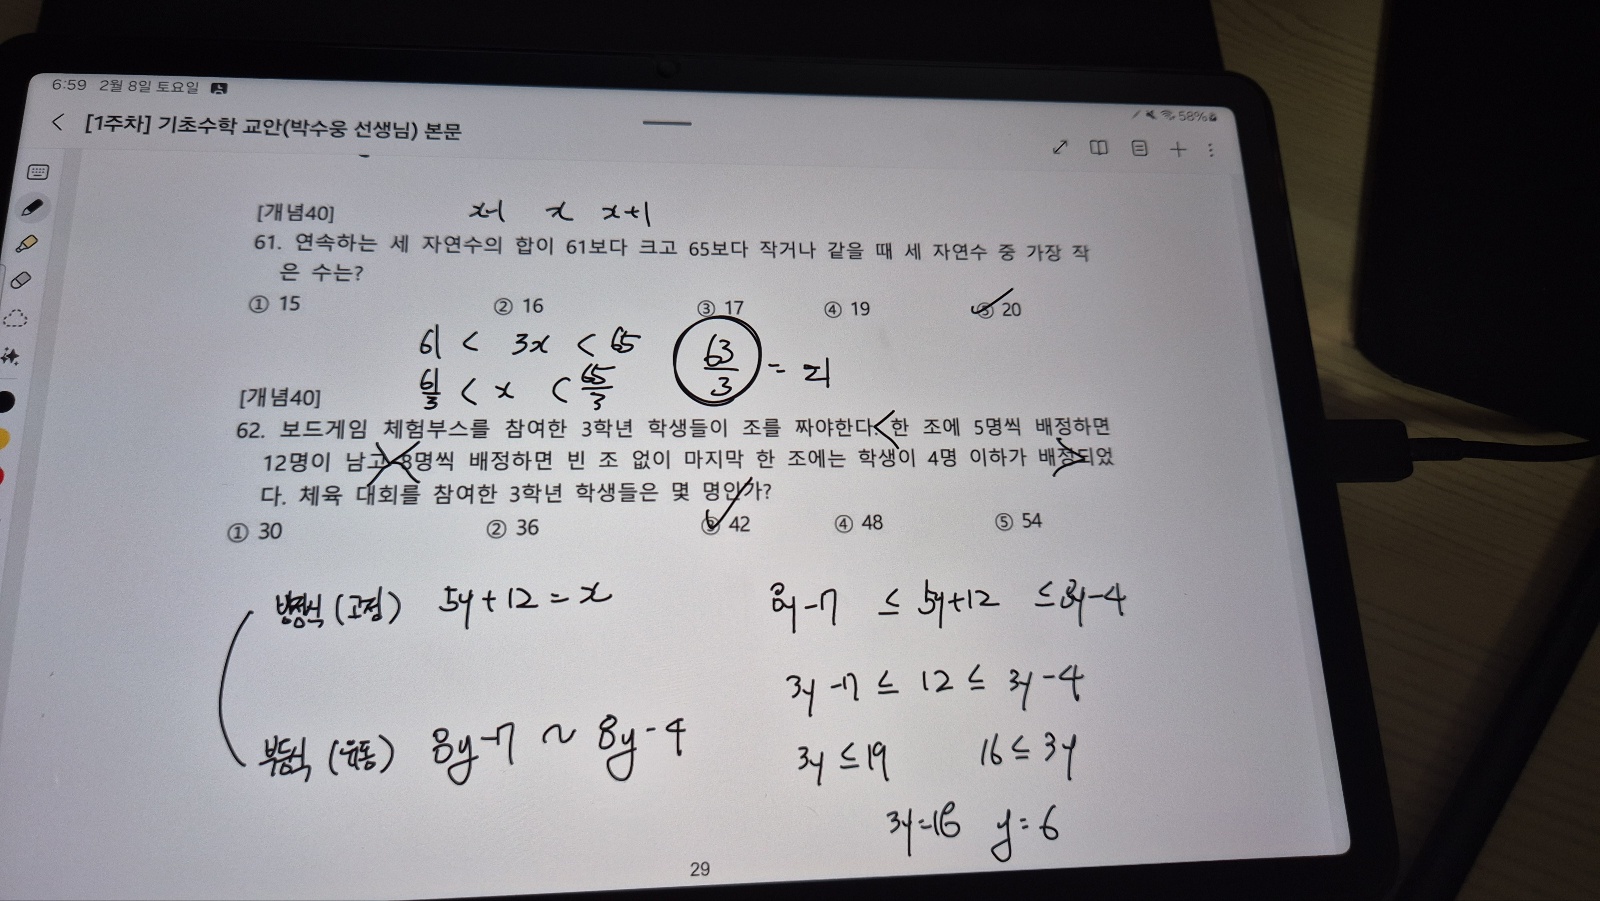 6:59 2월 8일 토요일
58%
[1주차] 기초수학 교안(박수웅 선생님) 본문
[개념40]
x-1 x x+1
61. 연속하는 세 자연수의 합이 61보다 크고 65보다 작거나 같을 때 세 자연수 중 가장 작
은 수는?
① 15 ② 16 ③ 17 ④ 19 ⑤ 20
61 < 3x < 65
61/3 < x < 65/3
63/3 = 21
[개념40]
62. 보드게임 체험부스를 참여한 3학년 학생들이 조를 짜야한다. 한 조에 5명씩 배정하면
12명이 남고 8명씩 배정하면 빈 조 없이 마지막 한 조에는 학생이 4명 이하가 배정되었
다. 체육 대회를 참여한 3학년 학생들은 몇 명인가?
① 30 ② 36 ③ 42 ④ 48 ⑤ 54
방정식 (고정) 5y+12=x
8y-7 ≤ 5y+12 ≤ 8y-4
3y-7 ≤ 12 ≤ 3y-4
부등식 (유동) 8y-7 ~ 8y-4
3y ≤ 19 16 ≤ 3y
y=6
29